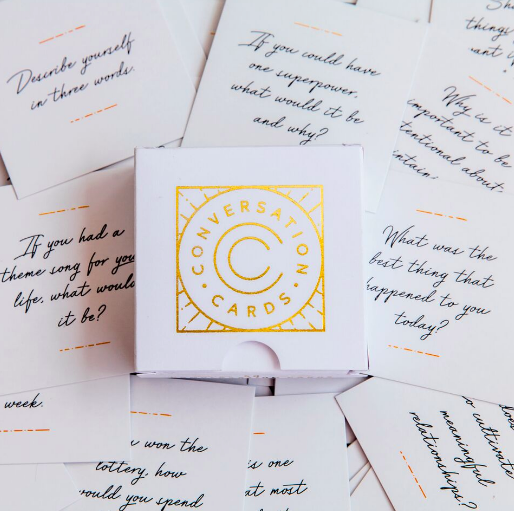 Describe yourself
in three words.
If you could have
one superpower,
what would it be
and why?
Sho
things
ant
Why is it
important to be
tentional about
ntain
If you had a
theme song for you
life, what would
it be?
CONVERSATION
CARDS
What was the
best thing that
happened to you
today?
week.
u won the
lottery, how
would you spend
is one
at most
does
o cultivate
meaningful
relationships?